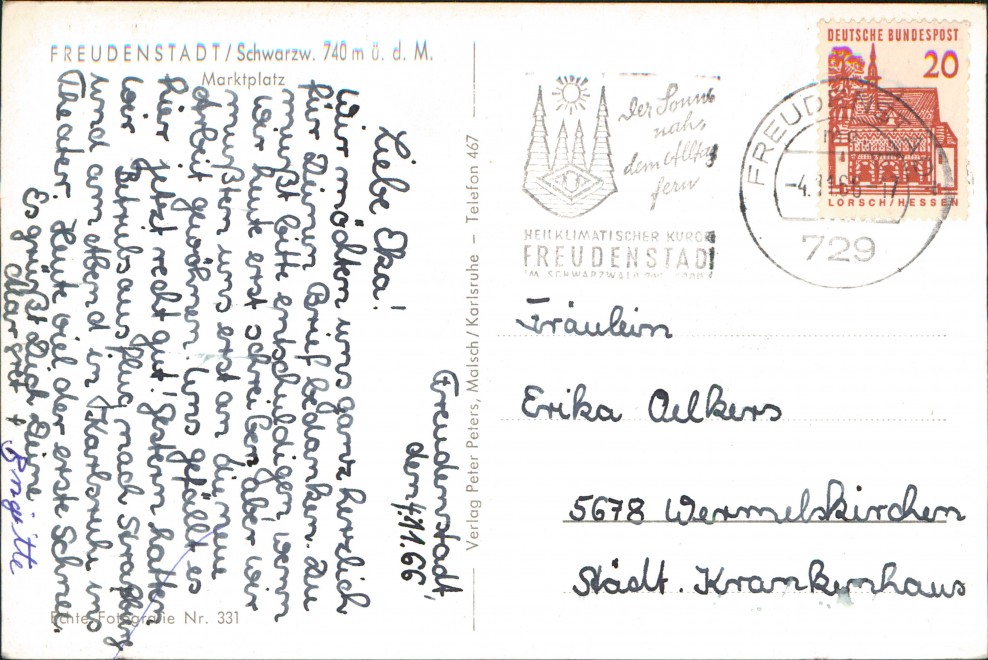 FREUDENSTADT/Schwarzw. 740 m ü. d. M.
Marktplatz
Freudenstadt,
den 4.11.66
Liebe Eka!
Wir möchten uns ganz herzlich
für Deinen Brief bedanken. Du
mußt bitte entschuldigen, wenn
wir heute erst schreiben, aber wir
mußten uns erst an die neue
Arbeit gewöhnen. Uns gefällt es
hier jetzt recht gut! Gestern hatten
wir Betriebsausflug nach Straßburg
und am Abend in Karlsruhe ins
Theater. Heute fiel der erste Schnee.
Es grüßt Dich Deine
Margret +
Brigitte
Echte Fotografie Nr. 331
Verlag Peter Peters, Malsch/Karlsruhe - Telefon 467
Der Sonne
nah,
dem Alltag
fern
HEILKLIMATISCHER KURORT
FREUDENSTADT
IM SCHWARZWALD
FREUDENSTADT
-4.11.66-17
729
DEUTSCHE BUNDESPOST
20
LORSCH/HESSEN
Fräulein
Erika Oelkers
5678 Wermelskirchen
Städt. Krankenhaus